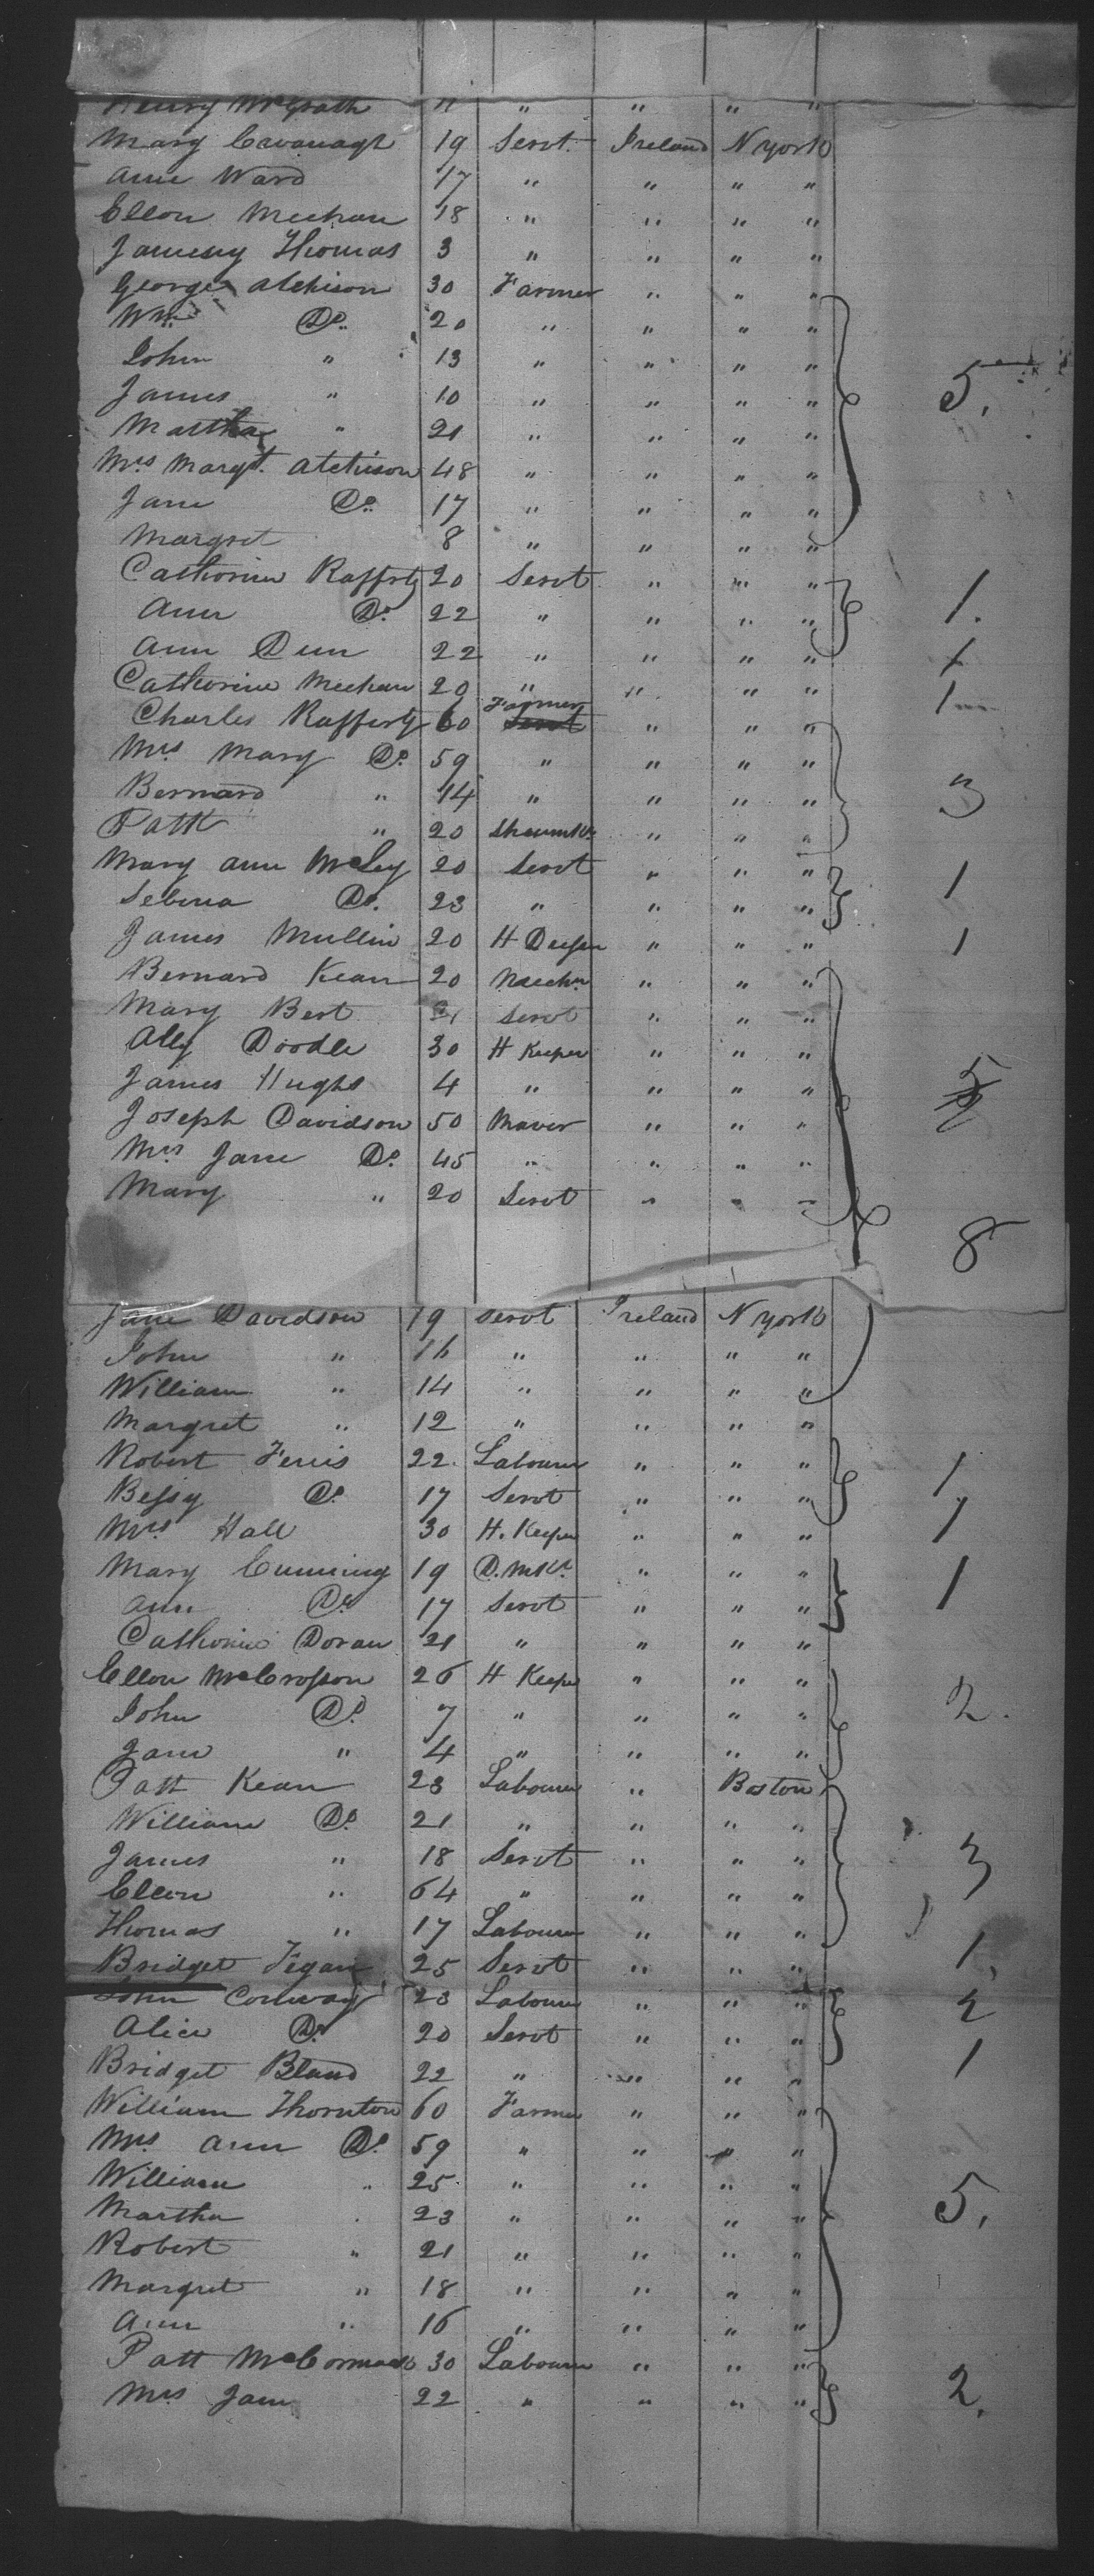 Henry McGrath 11 " " " "
Mary Cavanagh 19 Servt. Ireland N York
Ann Ward 17 " " " "
Ellen Meehan 18 " " " "
Thomas 3 " " " "
George Atchison 30 Farmer " " "
Wm Do. 20 " " " "
John " 13 " " " "
James " 10 " " " " 5.
Martha " 21 " " " "
Mrs Margt. Atchison 48 " " " "
Jane Do. 17 " " " "
Margret 8 " " " "
Catherine Rafferty 20 Servt " " "
Ann Do. 22 " " " " 1.
Ann Dun 22 " " " " 1
Catherine Meehan 20 " " " " 1
Charles Rafferty 60 Farmer " " "
Mrs Mary Do. 59 " " " "
Bernard " 14 " " " " 3
Patt " 20 " " "
Mary Ann 20 Servt " " " 1
Do. 23 " " " "
James Mullin 20 H " " " 1
Bernard Kean 20 " " "
Mary Bert 21 Servt " " "
Ally Doodle 30 H Keeper " " "
James Hughs 4 " " " " 5
Joseph Davidson 50 " " "
Mrs Jane Do. 45 " " " "
Mary " 20 Servt " " "
8
Jane Davidson 19 Servt Ireland N York
John " 16 " " " "
William " 14 " " " "
Margret " 12 " " " "
Robert Ferris 22. Labourer " " " 1
Bessy Do. 17 Servt " " " 1
Mrs Hall 30 H. Keeper " " "
Mary Cumming 19 D. Mkr. " " " 1
Ann Do. 17 Servt " " "
Catherine Doran 21 " " " "
Ellen McCrosson 26 H Keeper " " "
John Do. 7 " " " " 2.
Jane " 4 " " " "
Patt Kean 23 Labourer " Boston
William Do. 21 " " " "
James " 18 Servt " " " 3
Ellen " 64 " " " "
Thomas " 17 Labourer " " "
Bridget Fegan 25 Servt " " " 1
John Conway 23 Labourer " " " 2
Alice Do. 20 Servt " " "
Bridget Bland 22 " " " " 1
William Thornton 60 Farmer " " "
Mrs Ann Do. 59 " " " "
William " 25 " " " "
Martha " 23 " " " " 5.
Robert " 21 " " " "
Margret " 18 " " " "
Ann " 16 " " " "
Patt McCormack 30 Labourer " " " 2.
Mrs Jane 22 " " " "